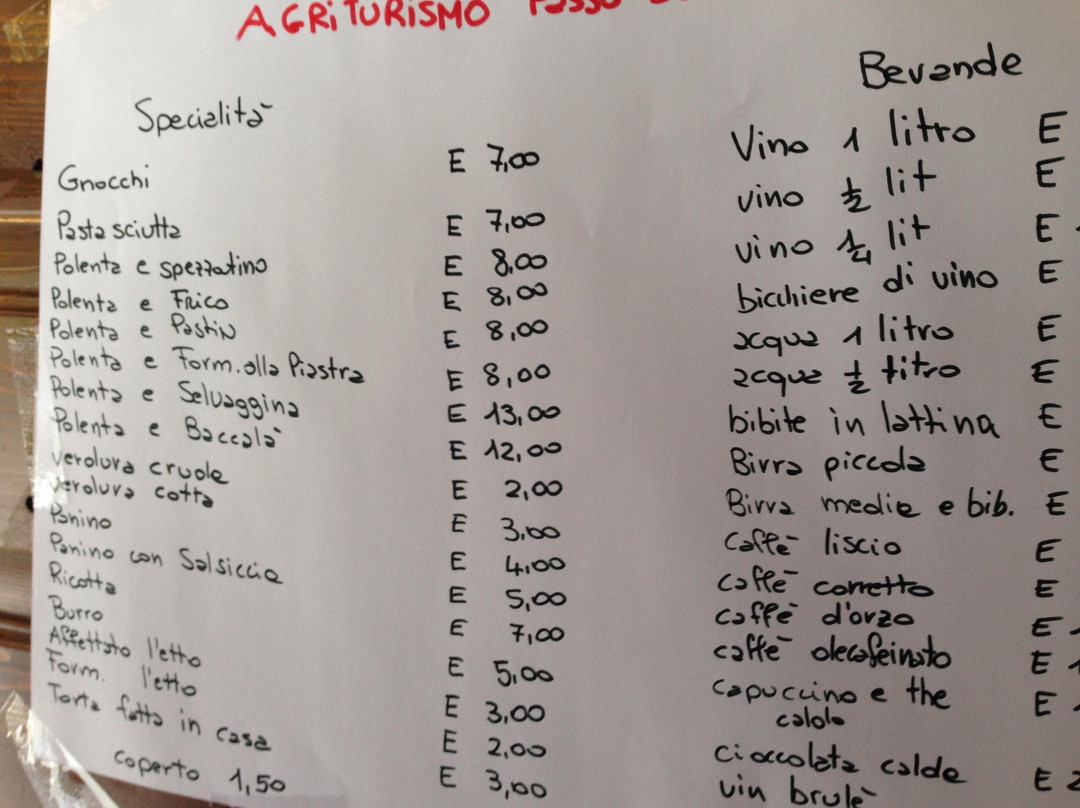 AGRITURISMO Passo
Specialità
Gnocchi E 7,00
Pasta sciutta E 7,00
Polenta e spezzatino E 8,00
Polenta e Frico E 8,00
Polenta e Pastin E 8,00
Polenta e Form. alla Piastra E 8,00
Polenta e Selvaggina E 13,00
Polenta e Baccalà E 12,00
verdura cruda E 2,00
verdura cotta E 3,00
Panino E 4,00
Panino con Salsiccia E 5,00
Ricotta E 7,00
Burro E 5,00
Affettato l'etto E 3,00
Form. l'etto E 2,00
Torta fatta in casa E 3,00
coperto 1,50
Bevande
Vino 1 litro E
vino ½ lit E
vino ¼ lit E
bicchiere di vino E
acqua 1 litro E
acqua ½ litro E
bibite in lattina E
Birra piccola E
Birra media e bib. E
caffè liscio E
caffè corretto E
caffè d'orzo E
caffè decafeinato E
capuccino e the E
caldo
cioccolata calda E
vin brulè